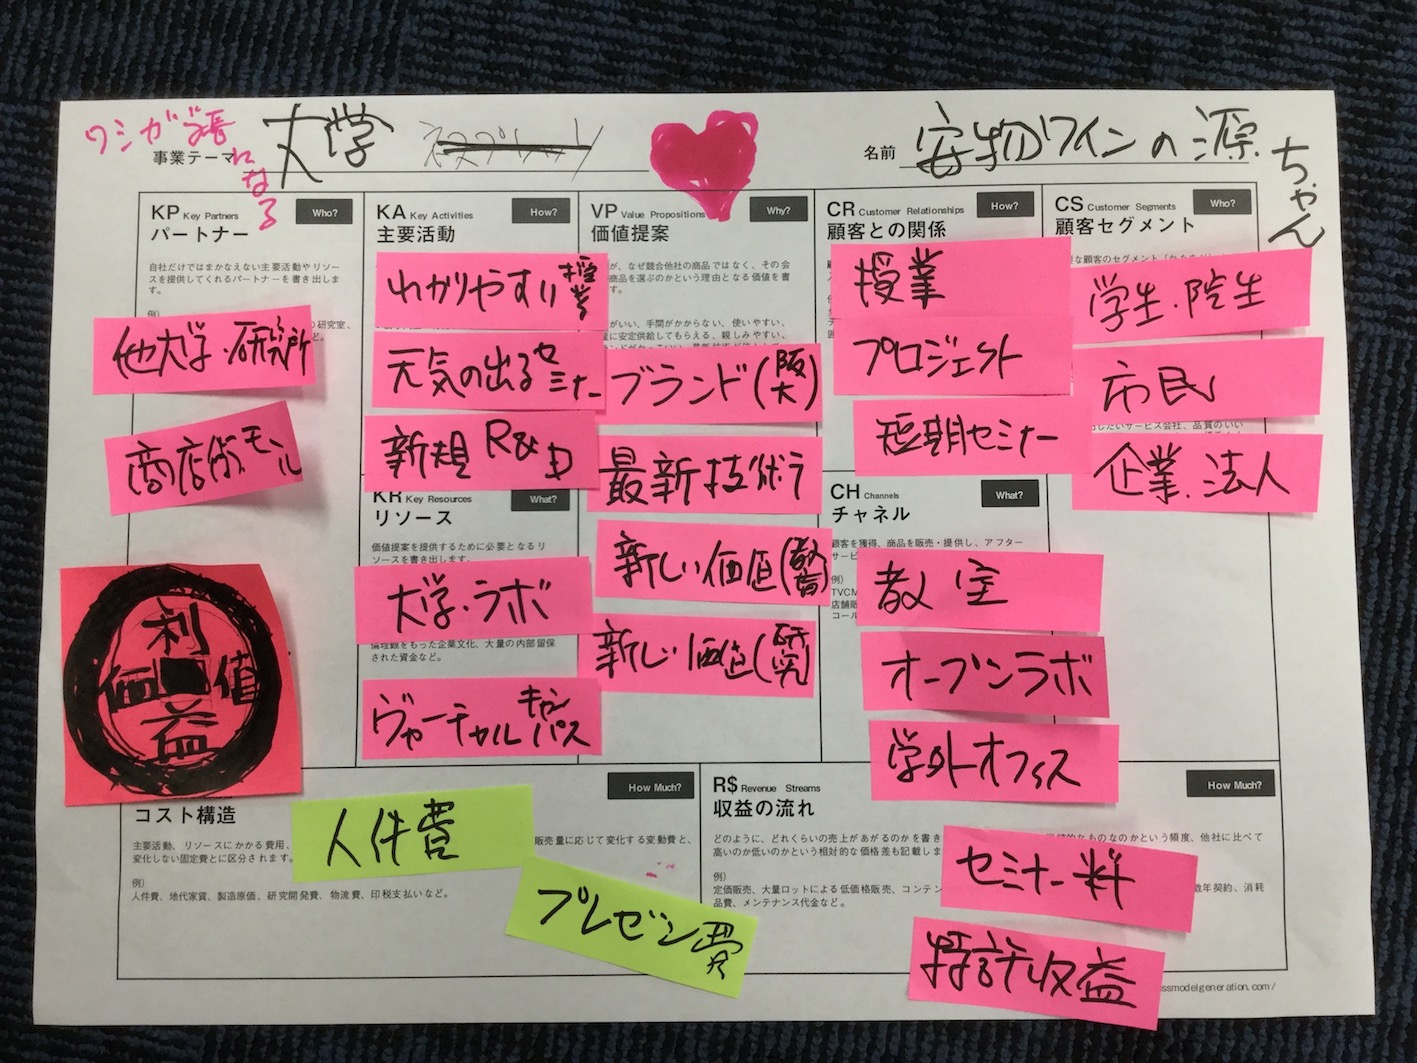 ワシが学長になる
事業テーマ 大学
名前 安物ワインの源ちゃん
KP Key Partners
Who?
パートナー
自社だけではまかなえない主要活動やリソー
スを提供してくれるパートナーを書き出しま
す。
例)
の研究室、
他大学・研究所
商店街モール
利益
価値
KA Key Activities
How?
主要活動
わかりやすい授業
元気の出るセミナー
新規 R&D
KR Key Resources
What?
リソース
価値提案を提供するために必要となるリ
ソースを書き出します。
大学・ラボ
倫理観をもった企業文化、大量の内部留保
された資金など。
ヴァーチャルキャンパス
VP Value Propositions
Why?
価値提案
が、なぜ競合他社の商品ではなく、その会
商品を選ぶのかという理由となる価値を書
す。
がいい、手間がかからない、使いやすい、
に安定供給してもらえる、親しみやすい、
ブランド(阪大)
最新技術
新しい価値(教育
新しい価値(研究
CR Customer Relationships
How?
顧客との関係
授業
プロジェクト
短期セミナー
CH Channels
What?
チャネル
顧客を獲得、商品を販売・提供し、アフター
サービ
例)
TVCM
店舗販
コール
教室
オープンラボ
学外オフィス
CS Customer Segments
Who?
顧客セグメント
学生・院生
市民
したいサービス会社、品質のいい
企業・法人
How Much?
コスト構造
主要活動、リソースにかかる費用、
販売量に応じて変化する変動費と、
変化しない固定費とに区分されます。
例)
人件費、地代家賃、製造原価、研究開発費、物流費、印税支払いなど。
人件費
プレゼン費
R$ Revenue Streams
How Much?
収益の流れ
どのように、どれくらいの売上があがるのかを書き
的なものなのかという頻度、他社に比べて
高いのか低いのかという相対的な価格差も記載しま
例)
定価販売、大量ロットによる低価格販売、コンテン
数年契約、消耗
品費、メンテナンス代金など。
セミナー料
特許収益
ssmodelgeneration.com/